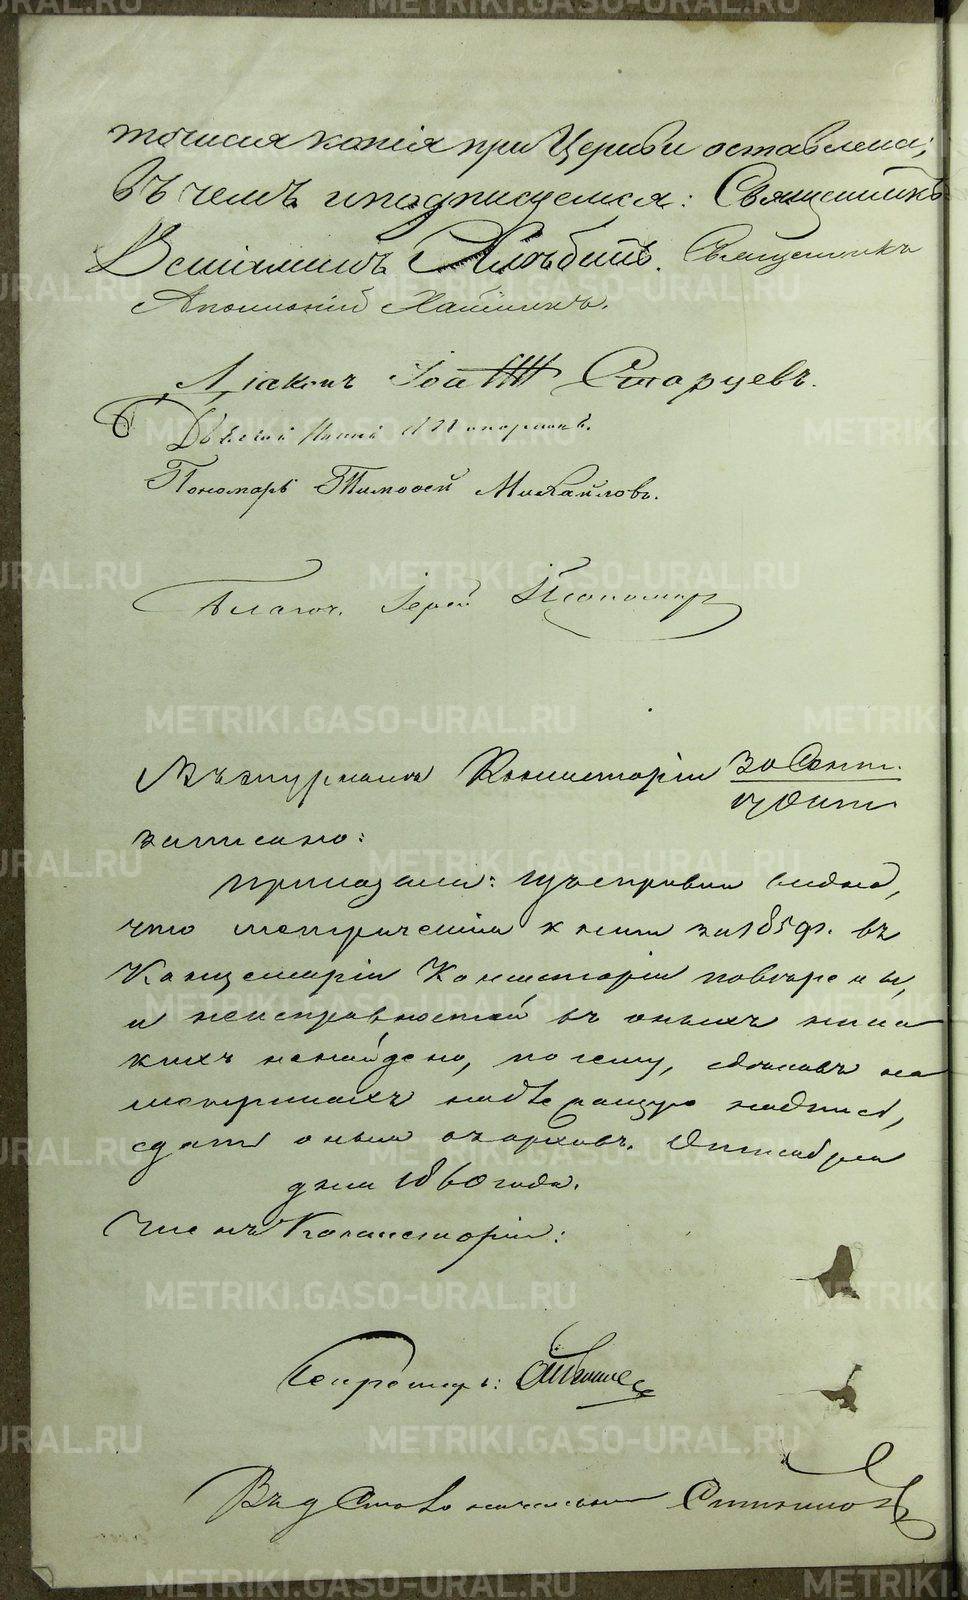 точная копія при Церкви оставлена;
въ чемъ и подписуемся: Священникъ
Веніаминъ Священникъ
Аполлоній
Діаконъ Старцевъ.
Пономарь Тимофей Михайловъ.
Благоч. Іерей Пономар
Въ журналѣ Консисторіи 30 Сент.
17 Окт.
записано:
Приказали: Изъ справки видно,
что метрическія книги за 1859 г. въ
Канцеляріи Консисторіи повѣрены,
и неисправностей въ оныхъ ника
кихъ ненайдено, почему, сдѣлавъ на
метрикахъ надлежащую надпись,
сдать оныя въ архивъ. Октября
дня 1860 года.
Членъ Консисторіи:
Секретарь:
METRIKI.GASO-URAL.RU